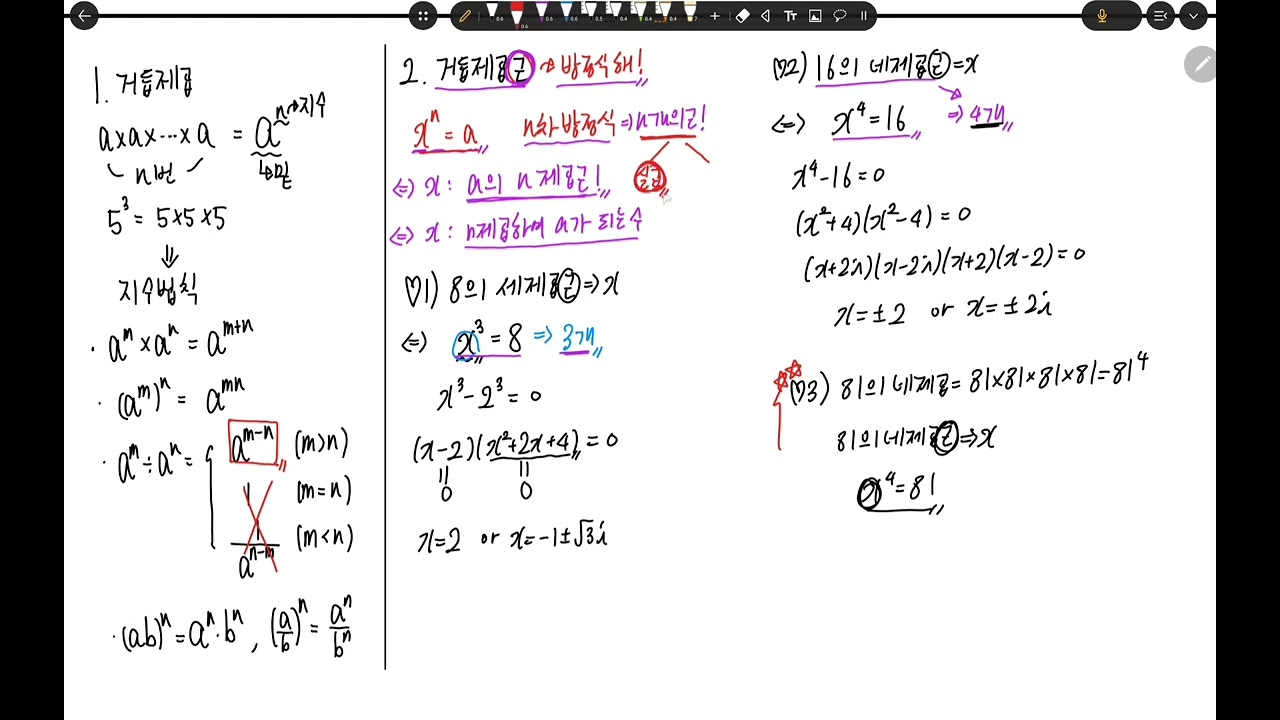 1. 거듭제곱
a×a×⋯×a = aⁿ → 지수
n번
↳ 밑
5³ = 5×5×5
⇓
지수법칙
· aᵐ × aⁿ = aᵐ⁺ⁿ
· (aᵐ)ⁿ = aᵐⁿ
· aᵐ ÷ aⁿ = { aᵐ⁻ⁿ (m>n)
1 (m=n)
1/aⁿ⁻ᵐ (m<n)
· (ab)ⁿ = aⁿ·bⁿ, (a/b)ⁿ = aⁿ/bⁿ
2. 거듭제곱근 → 방정식해!
xⁿ = a n차 방정식 ⇒ n개의 근!
실근
⇔ x : a의 n제곱근!
⇔ x : n제곱하여 a가 되는 수
예1) 8의 세제곱근 ⇒ x
⇔ x³ = 8 ⇒ 3개
x³ - 2³ = 0
(x-2)(x²+2x+4) = 0
0 0
x=2 or x=-1±√3i
예2) 16의 네제곱근 = x
⇔ x⁴ = 16 ⇒ 4개
x⁴-16 = 0
(x²+4)(x²-4) = 0
(x+2i)(x-2i)(x+2)(x-2) = 0
x=±2 or x=±2i
예3) 81의 네제곱 = 81×81×81×81 = 81⁴
81의 네제곱근 ⇒ x
x⁴ = 81